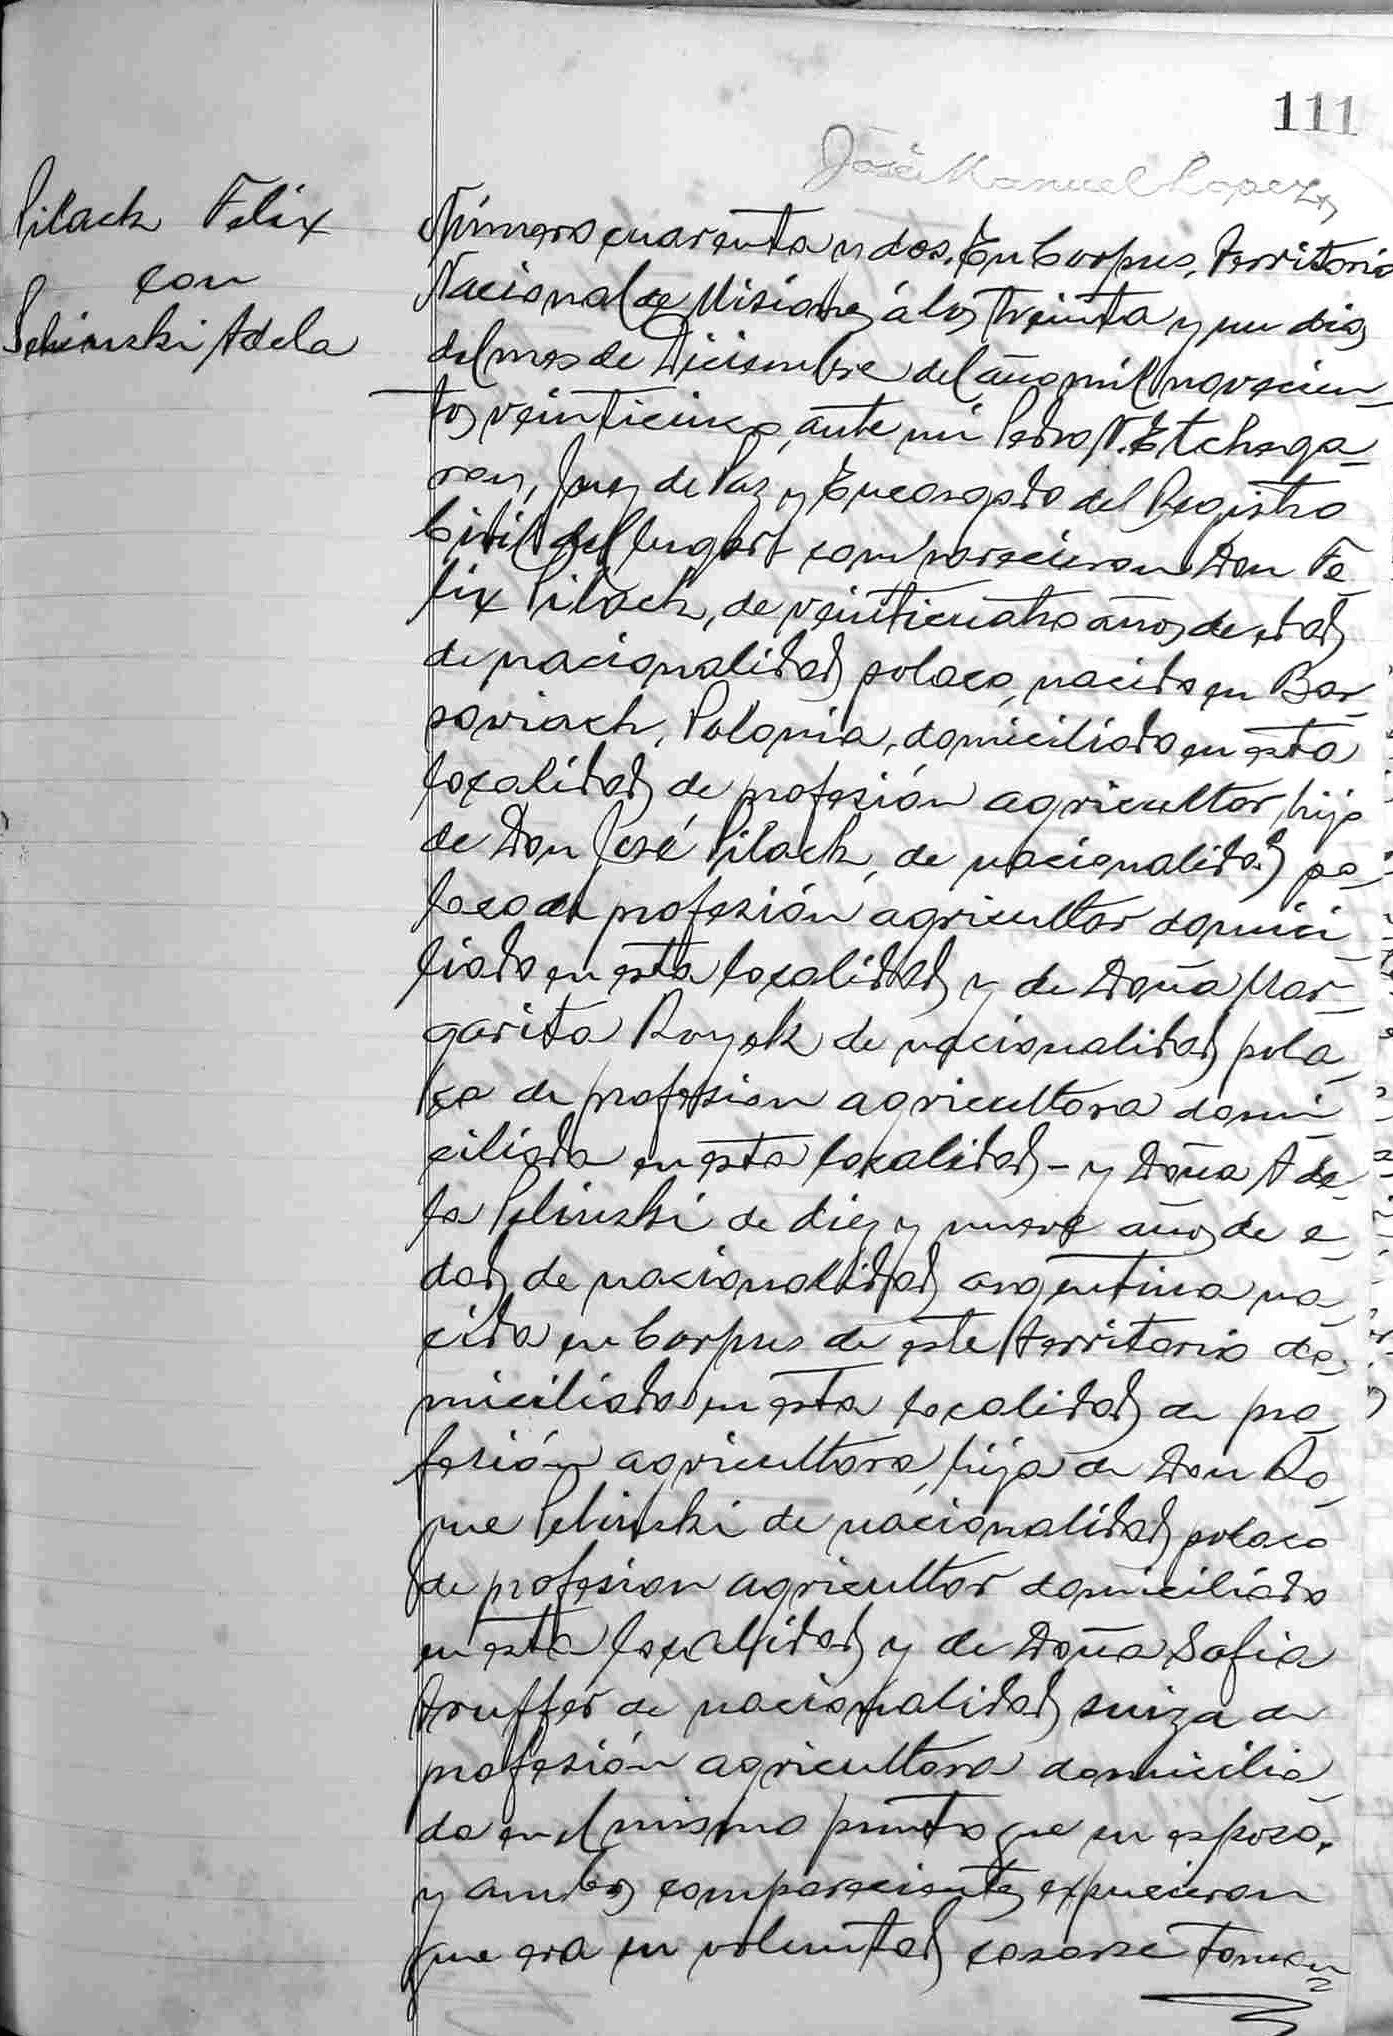 111
José Manuel Lopez
Pilach Felix
con
Pelinski Adela
Número cuarenta y dos. En Corpus, territorio
Nacional de Misiones, á los treinta y un dias
del mes de Diciembre del año mil novecien-
tos veinticinco, ante mi Pedro N. Etchega-
ray, Juez de Paz y Encargado del Registro
Civil del lugar comparecieron Don Fe-
lix Pilach, de veinticuatro años de edad
de nacionalidad polaco, nacido en Bar-
soviach, Polonia, domiciliado en esta
localidad de profesión agricultor, hijo
de Don José Pilach, de nacionalidad po-
laco de profesión agricultor domici-
liado en esta localidad y de Doña Mar-
garita Royek de nacionalidad pola-
ca de profesion agricultora domi-
ciliada en esta localidad - y Doña Ade-
la Pelinski de diez y nueve años de e-
dad de nacionalidad argentina na-
cida en Corpus de este territorio do-
miciliada en esta localidad de pro-
fesión agricultora, hija de Don Ro-
que Pelinski de nacionalidad polaco
de profesion agricultor domiciliado
en esta localidad y de Doña Sofia
Truffer de nacionalidad suiza de
profesión agricultora domicilia-
da en el mismo punto que su esposo.
y ambos comparecientes expusieron
que era su voluntad casarse toman-